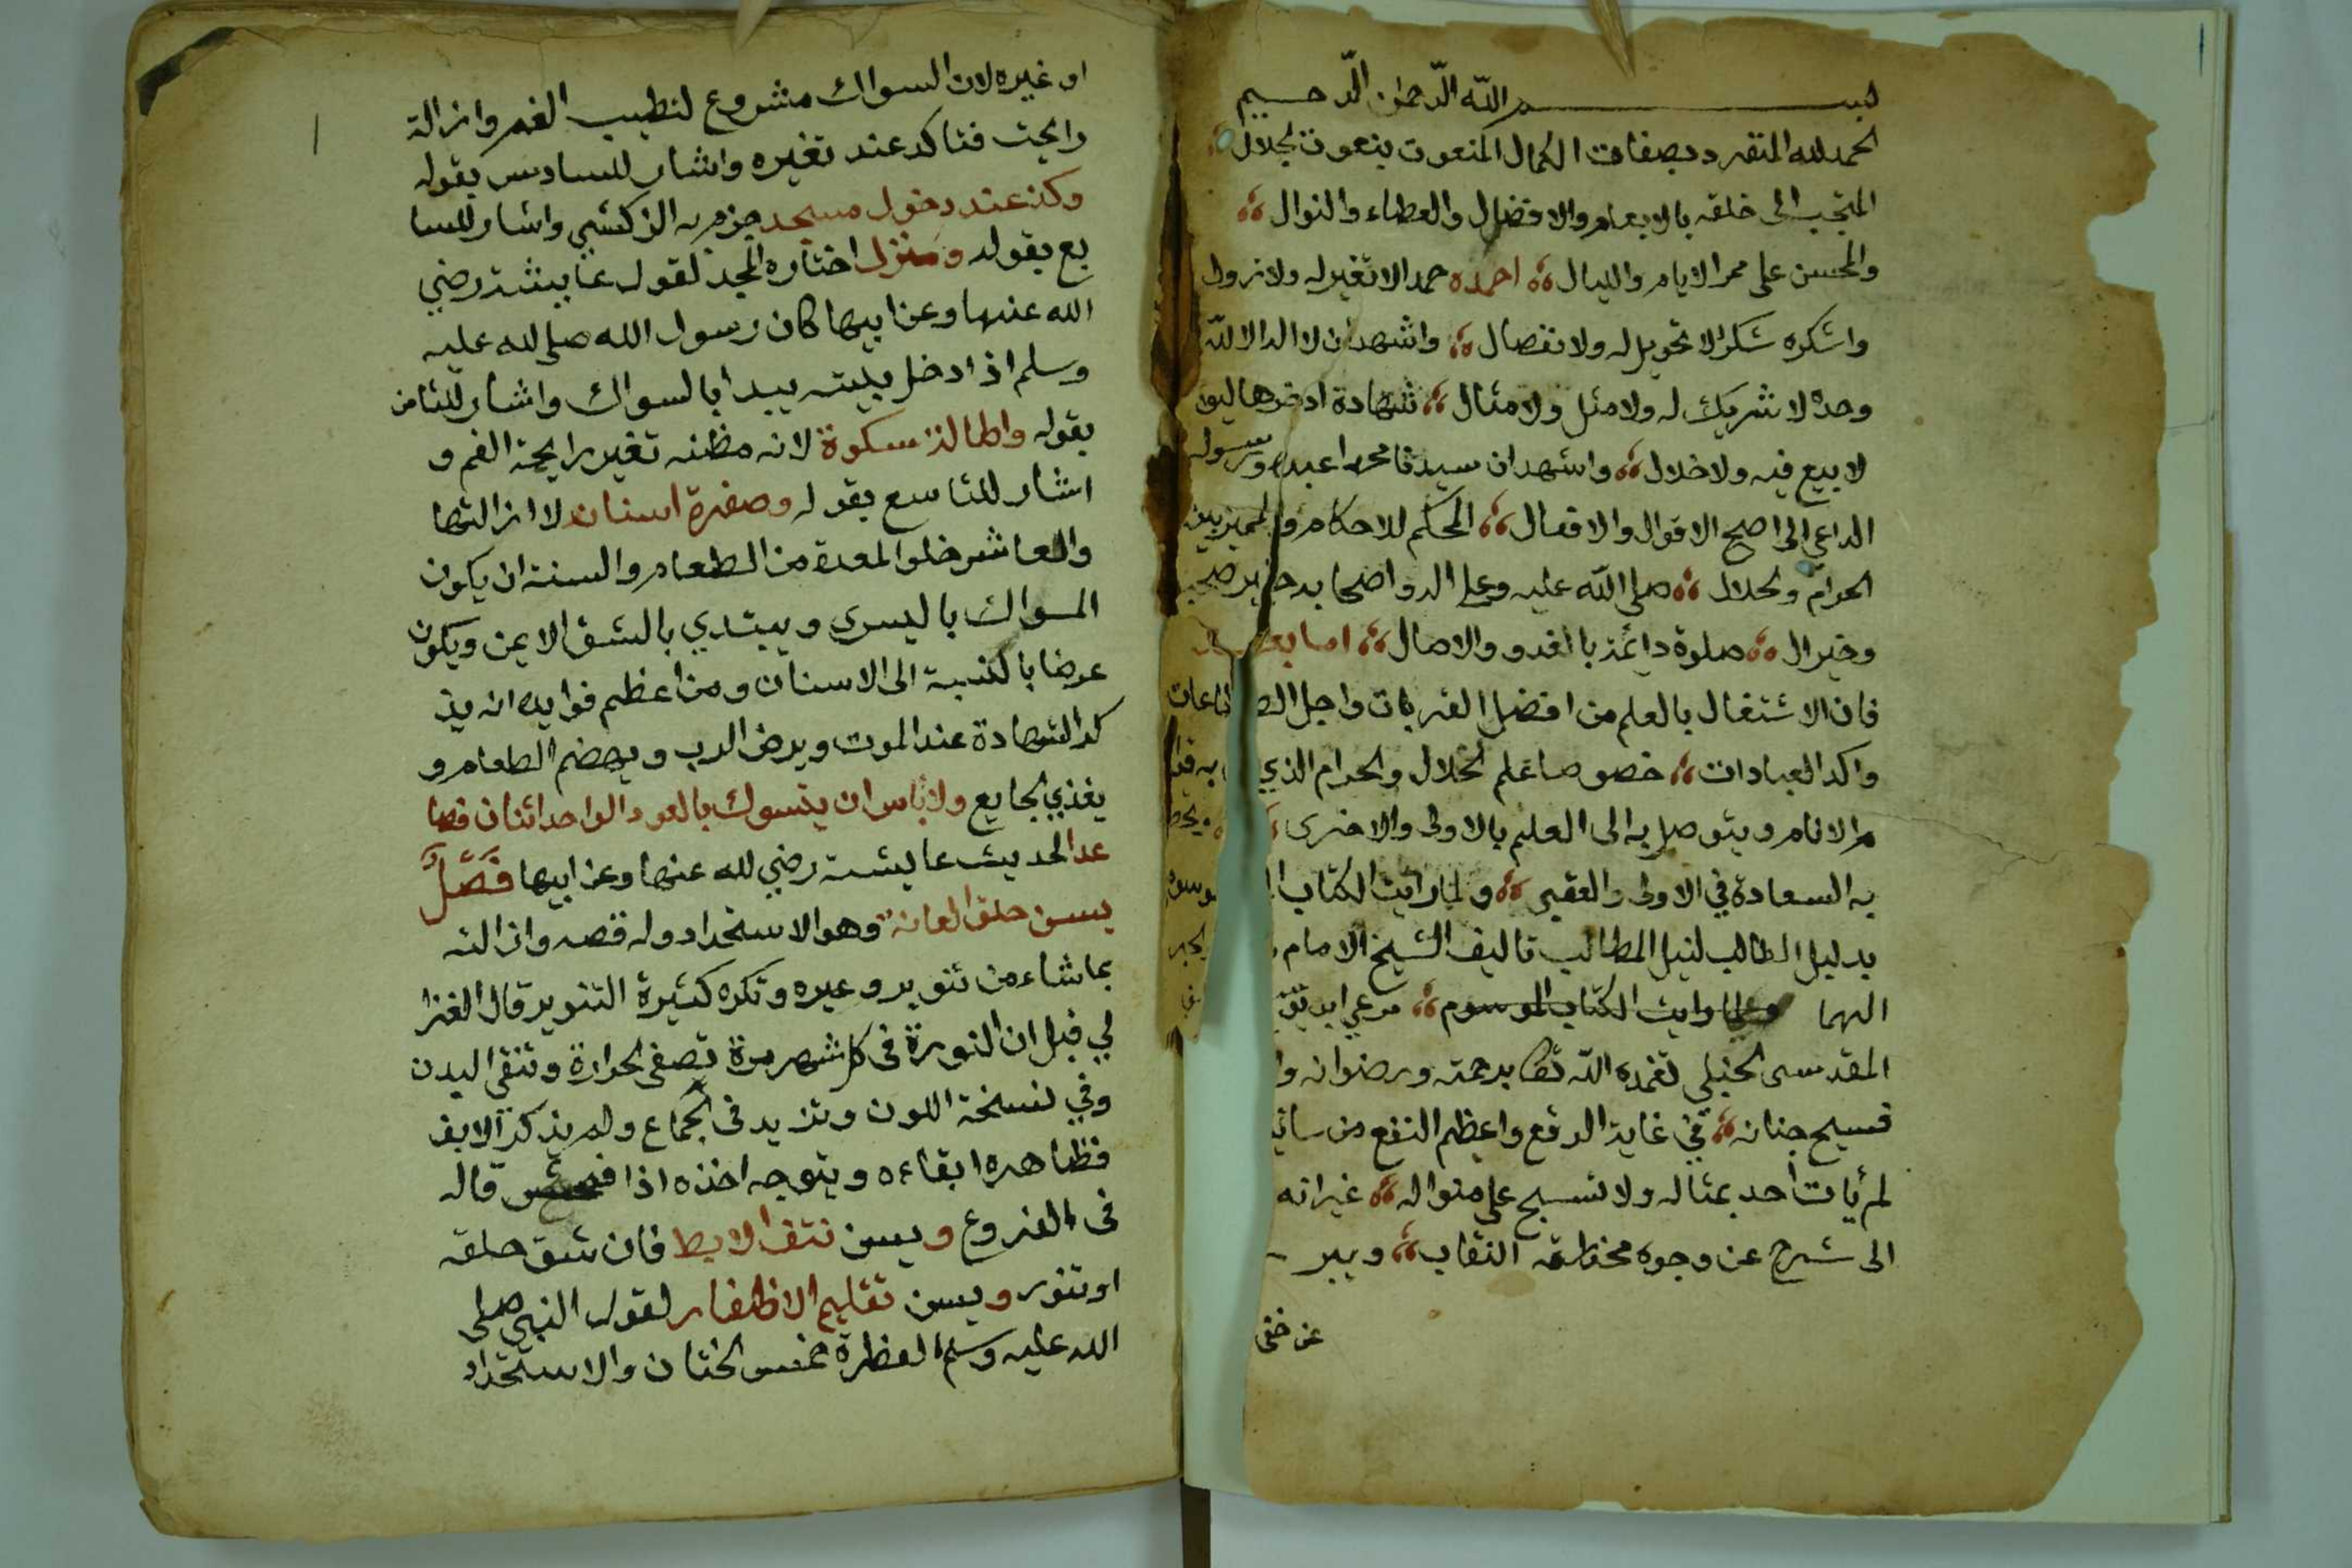 بسم الله الرحمن الرحيم
الحمد لله المتفرد بصفات الكمال المنعوت بنعوت الجلال
المتحبب الى خلقه بالانعام والافضال والعطاء والنوال
والمحسن على ممر الايام والليال احمده حمدا لا تغير له ولا زوال
واشكره شكرا لا تحويل له ولا نفصال واشهد ان لا اله الا الله
وحده لا شريك له ولا مثل ولا مثال شهادة ادخرها ليوم
لا بيع فيه ولا خلال واشهد ان سيدنا محمدا عبده ورسوله
الداعي الى اصح الاقوال والافعال المحكم للاحكام والمميز بين
الحرام والحلال صلى الله عليه وعلى اله واصحابه خير صحب
وخير ال صلوة دائمة بالغدو والاصال اما بعد
فان الاشتغال بالعلم من افضل القربات واجل الطاعات
واكد العبادات خصوصا علم الحلال والحرام الذي به قوا
م الانام ويتوصل به الى العليم بالاولى والاخرى
به السعادة في الاولى والعقبى ولما رايت الكتاب الموسوم
بدليل الطالب لنيل المطالب تاليف الشيخ الامام
الهما ولما رايت الكتاب الموسوم مرعي ابن
المقدسى الحنبلي تغمده الله تعا برحمته ورضوانه وا
فسيح جنانه في غاية الوقع واعظم النفع من سائر
لم يات احد بمثاله ولا نسج على منواله غير انه
الى شرح عن وجوه مخدراته النقاب ويبر
عن خفى
او غيره لان السواك مشروع لتطييب الفم وازالة
رايحته فتاكد عند تغيره واشار للسادس بقوله
وكذ عند دخول مسجد جزم به الزركشي واشار للسا
بع بقوله ومنزل اختاره المجد لقول عايشة رضي
الله عنها وعن ابيها كان رسول الله صلى لله عليه
وسلم اذا دخل بيته يبدا بالسواك واشار للثامن
بقوله واطالة سكوة لانه مظنه تغير رايحة الفم و
اشار للتاسع بقوله وصفرة اسنان لا ازالتها
والعاشر خلو المعدة من الطعام والسنة ان يكون
المسواك باليسرى ويبتدي بالشق الايمن ويكون
عرضا بالنسبة الى الاسنان ومن اعظم فوايده انه يذ
كر الشهادة عند الموت ويرض الرب ويهضم الطعام و
يغذي الجايع ولا باس ان يتسوك بالعود الواحد اثنان فصا
عدا لحديث عايشة رضي لله عنها وعن ابيها فصل
يسن حلق العانة وهو الاستحداد وله قصه وازالته
بما شاء من تنوير وغيره وتكره كثيرة التنوير قال الغزا
لي قيل ان النورة في كل شهر مرة تصفى الحرارة وتنقي البدن
وفي نسخة اللون وتزيد في الجماع ولم يذكر الانف
فظاهره ابقاءه ويتوجه اخذه اذا فحش قاله
في الفروع ويسن نتف الابط فان شق حلقه
او تنور ويسن تقليم الاظفار لقول النبي صلى
الله عليه وسلم الفطرة خمس الختان والاستحداد